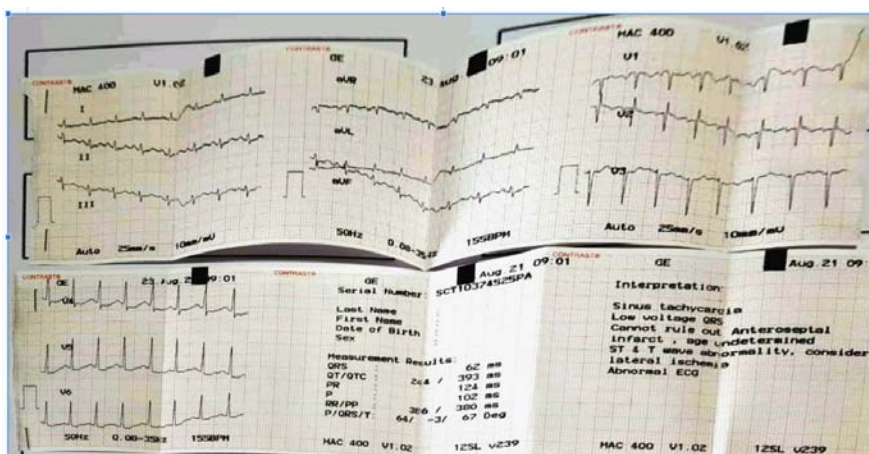 CONTRAST®
MAC 400 V1.02
I
II
III
Auto 25mm/s 10mm/mV
CONTRAST®
GE
23 Aug 09:01
aVR
aVL
aVF
50Hz 0.08-35Hz 155BPM
CONTRAST®
MAC 400 V1.02
V1
V2
V3
Auto 25mm/s 10mm/mV
CONTRAST®
GE
23 Aug.21 09:01
V4
V5
V6
50Hz 0.08-35Hz 155BPM
CONTRAST®
GE
Aug.21 09:01
Serial Number:
Last Name :
First Name :
Date of Birth :
Sex :
Measurement Results:
QRS : 62 ms
QT/QTC : / 393 ms
PR : 124 ms
P : 102 ms
RR/PP : 386 / 380 ms
P/QRS/T: 64/ -3/ 67 Deg
MAC 400 V1.02 12SL v239
CONTRAST®
GE
Aug.21 09:01
Interpretation:
Sinus tachycardia
Low voltage QRS
Cannot rule out Anteroseptal
infarct , age undetermined
ST & T wave abnormality, consider
lateral ischemia
Abnormal ECG
MAC 400 V1.02 12SL v239